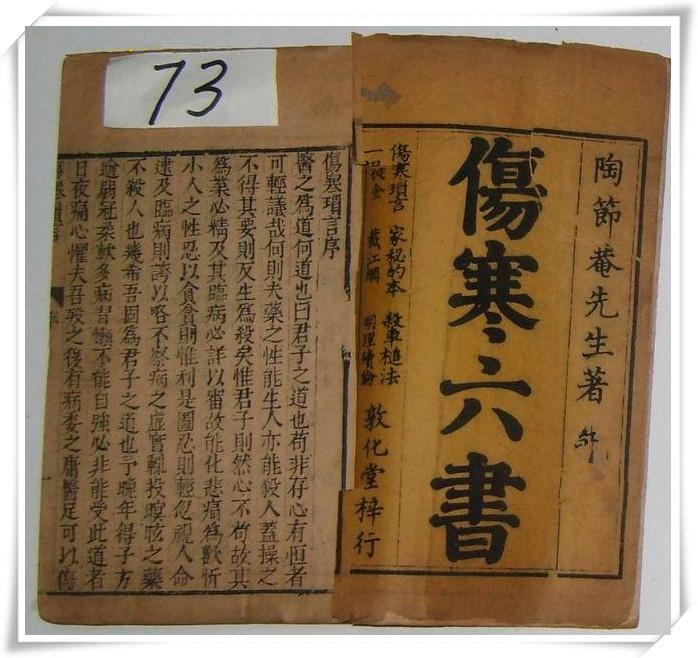 73
陶節菴先生著
傷寒六書
傷寒瑣言 家秘的本 殺車槌法
一提金 截江網 明理續論
敦化堂梓行
傷寒瑣言序
醫之爲道何道也曰君子之道也苟非存心有恒者
可輕議哉何則夫藥之性能生人亦能殺人蓋操之
不得其要則反生爲殺矣惟君子則然心不苟故其
爲業必精及其臨病必詳以審故能化悲痛爲歡忻
小人之性忍以貪貪則惟利是圖忍則輕忽視人命
逮及臨病則誇以略不察病之虛實輒投瞑眩之藥
不殺人也幾希吾固爲君子之道也予晚年得子方
逾弱冠柔軟多病懶不能自強必非能受此道者
日夜痛心懼夫吾歿之後有病委之庸醫足可以傷
傷寒瑣言